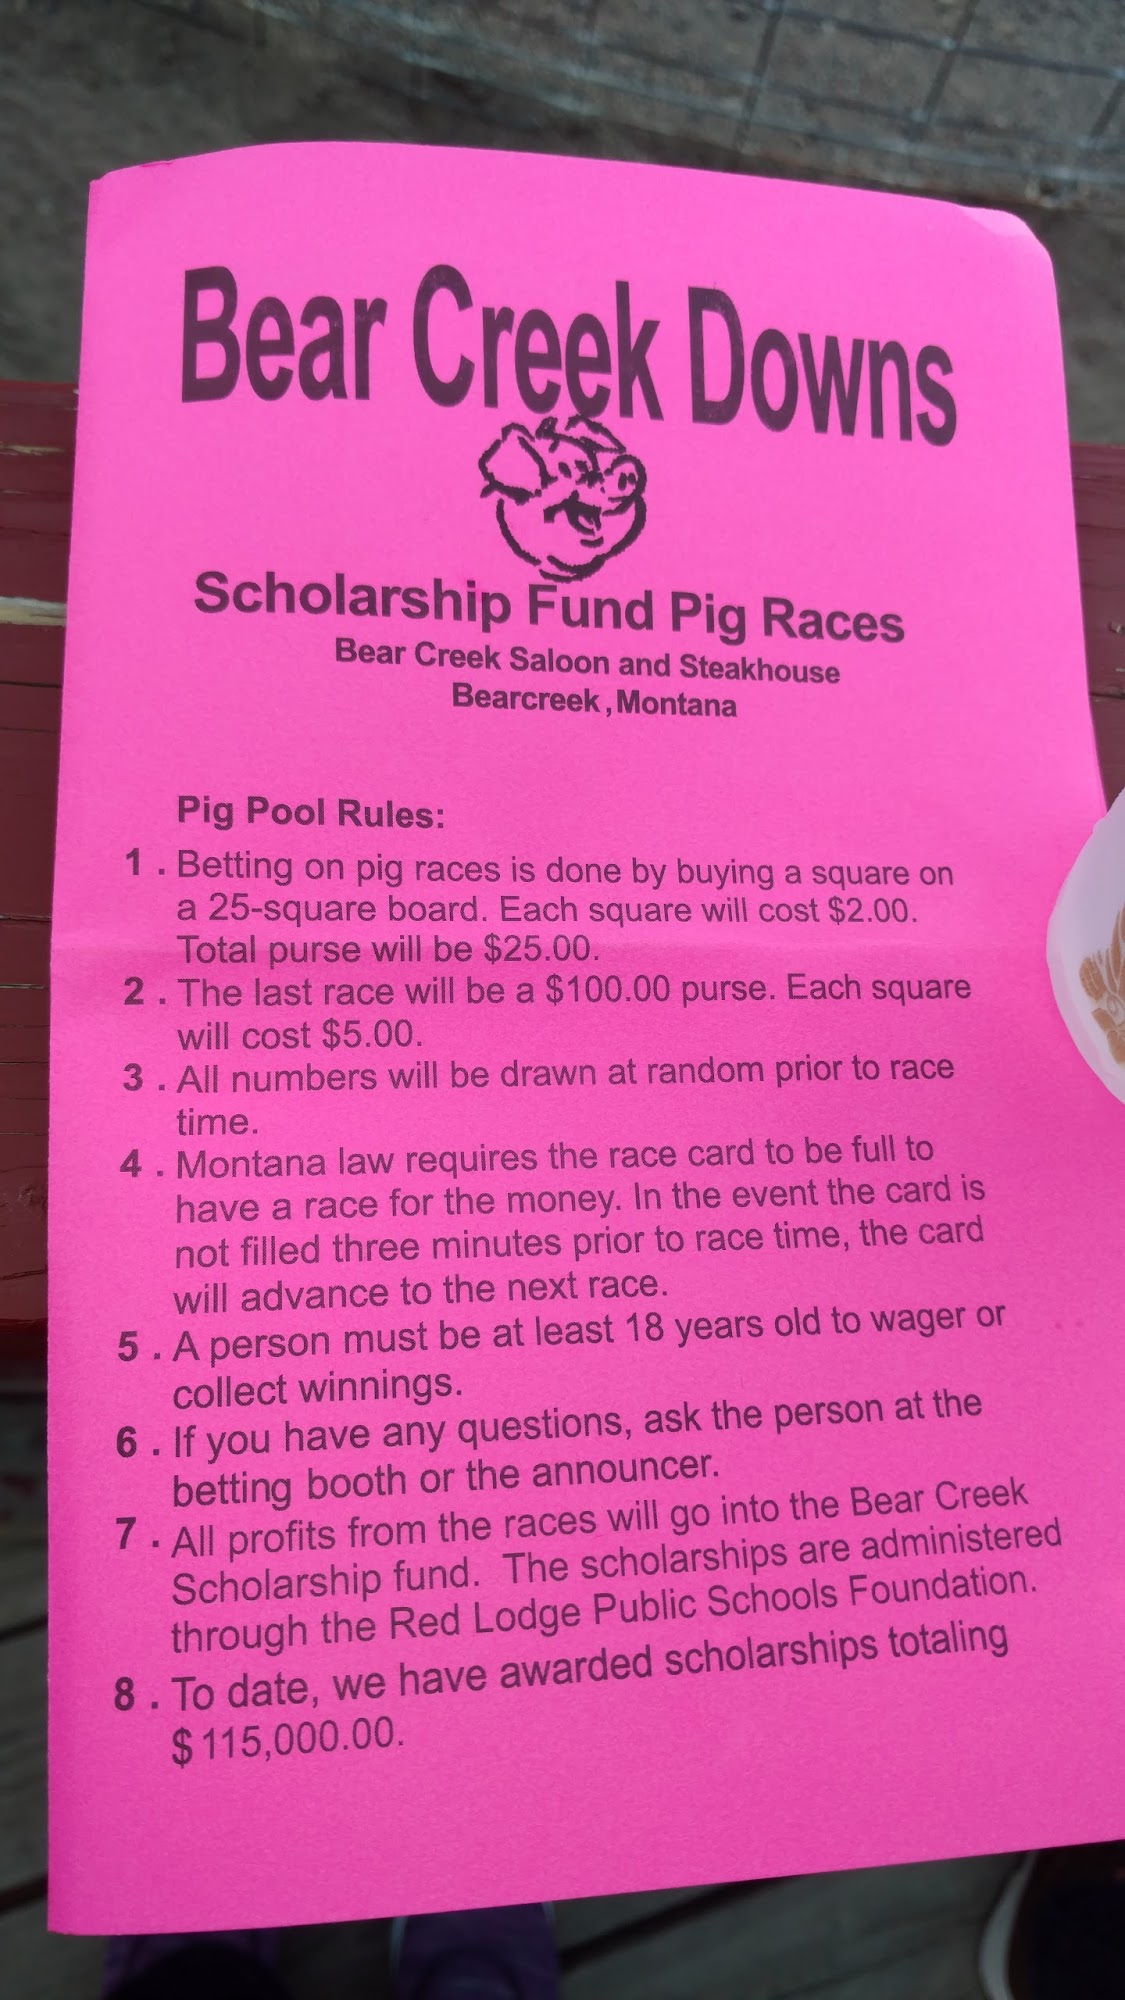 Bear Creek Downs
Scholarship Fund Pig Races
Bear Creek Saloon and Steakhouse
Bearcreek, Montana
Pig Pool Rules:
1. Betting on pig races is done by buying a square on
a 25-square board. Each square will cost $2.00.
Total purse will be $25.00.
2. The last race will be a $100.00 purse. Each square
will cost $5.00.
3. All numbers will be drawn at random prior to race
time.
4. Montana law requires the race card to be full to
have a race for the money. In the event the card is
not filled three minutes prior to race time, the card
will advance to the next race.
5. A person must be at least 18 years old to wager or
collect winnings.
6. If you have any questions, ask the person at the
betting booth or the announcer.
7. All profits from the races will go into the Bear Creek
Scholarship fund. The scholarships are administered
through the Red Lodge Public Schools Foundation.
8. To date, we have awarded scholarships totaling
$115,000.00.